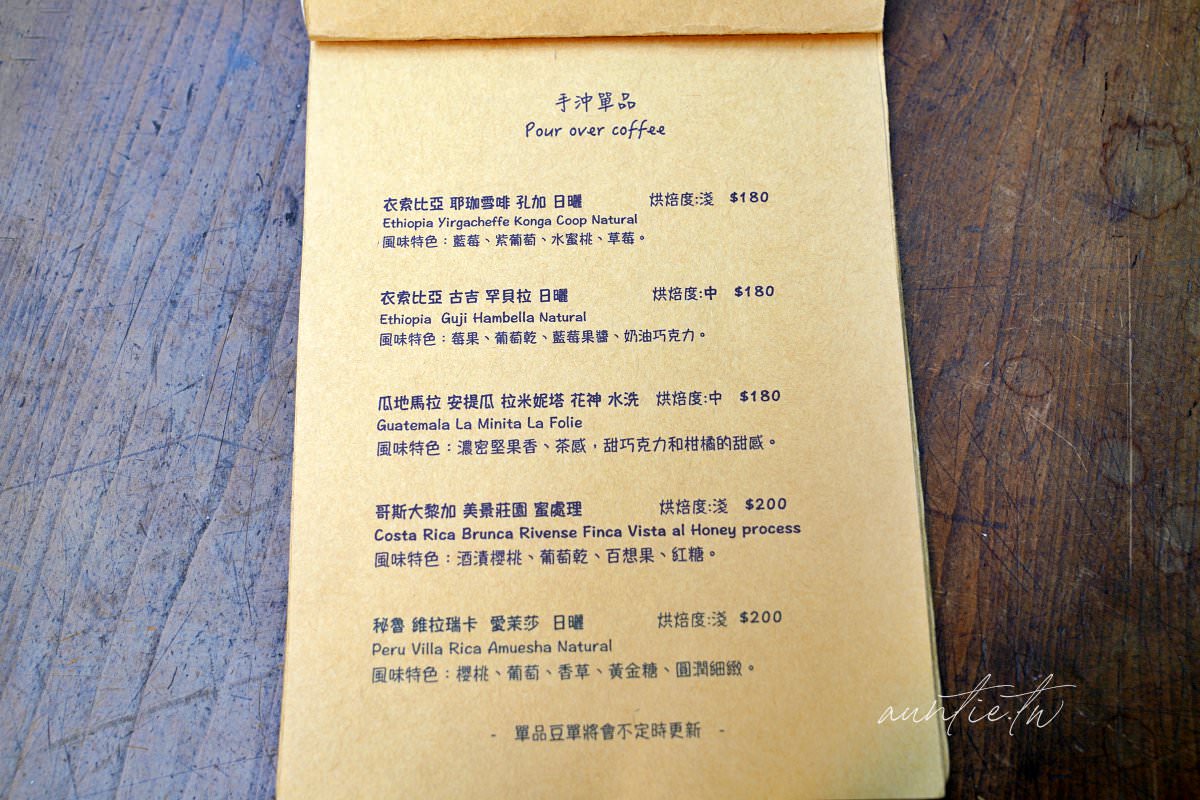 手沖單品
Pour over coffee
衣索比亞 耶珈雪啡 孔加 日曬 烘焙度:淺 $180
Ethiopia Yirgacheffe Konga Coop Natural
風味特色：藍莓、紫葡萄、水蜜桃、草莓。
衣索比亞 古吉 罕貝拉 日曬 烘焙度:中 $180
Ethiopia Guji Hambella Natural
風味特色：莓果、葡萄乾、藍莓果醬、奶油巧克力。
瓜地馬拉 安提瓜 拉米妮塔 花神 水洗 烘焙度:中 $180
Guatemala La Minita La Folie
風味特色：濃密堅果香、茶感，甜巧克力和柑橘的甜感。
哥斯大黎加 美景莊園 蜜處理 烘焙度:淺 $200
Costa Rica Brunca Rivense Finca Vista al Honey process
風味特色：酒漬櫻桃、葡萄乾、百想果、紅糖。
秘魯 維拉瑞卡 愛茉莎 日曬 烘焙度:淺 $200
Peru Villa Rica Amuesha Natural
風味特色：櫻桃、葡萄、香草、黃金糖、圓潤細緻。
- 單品豆單將會不定時更新 -
auntie.tw